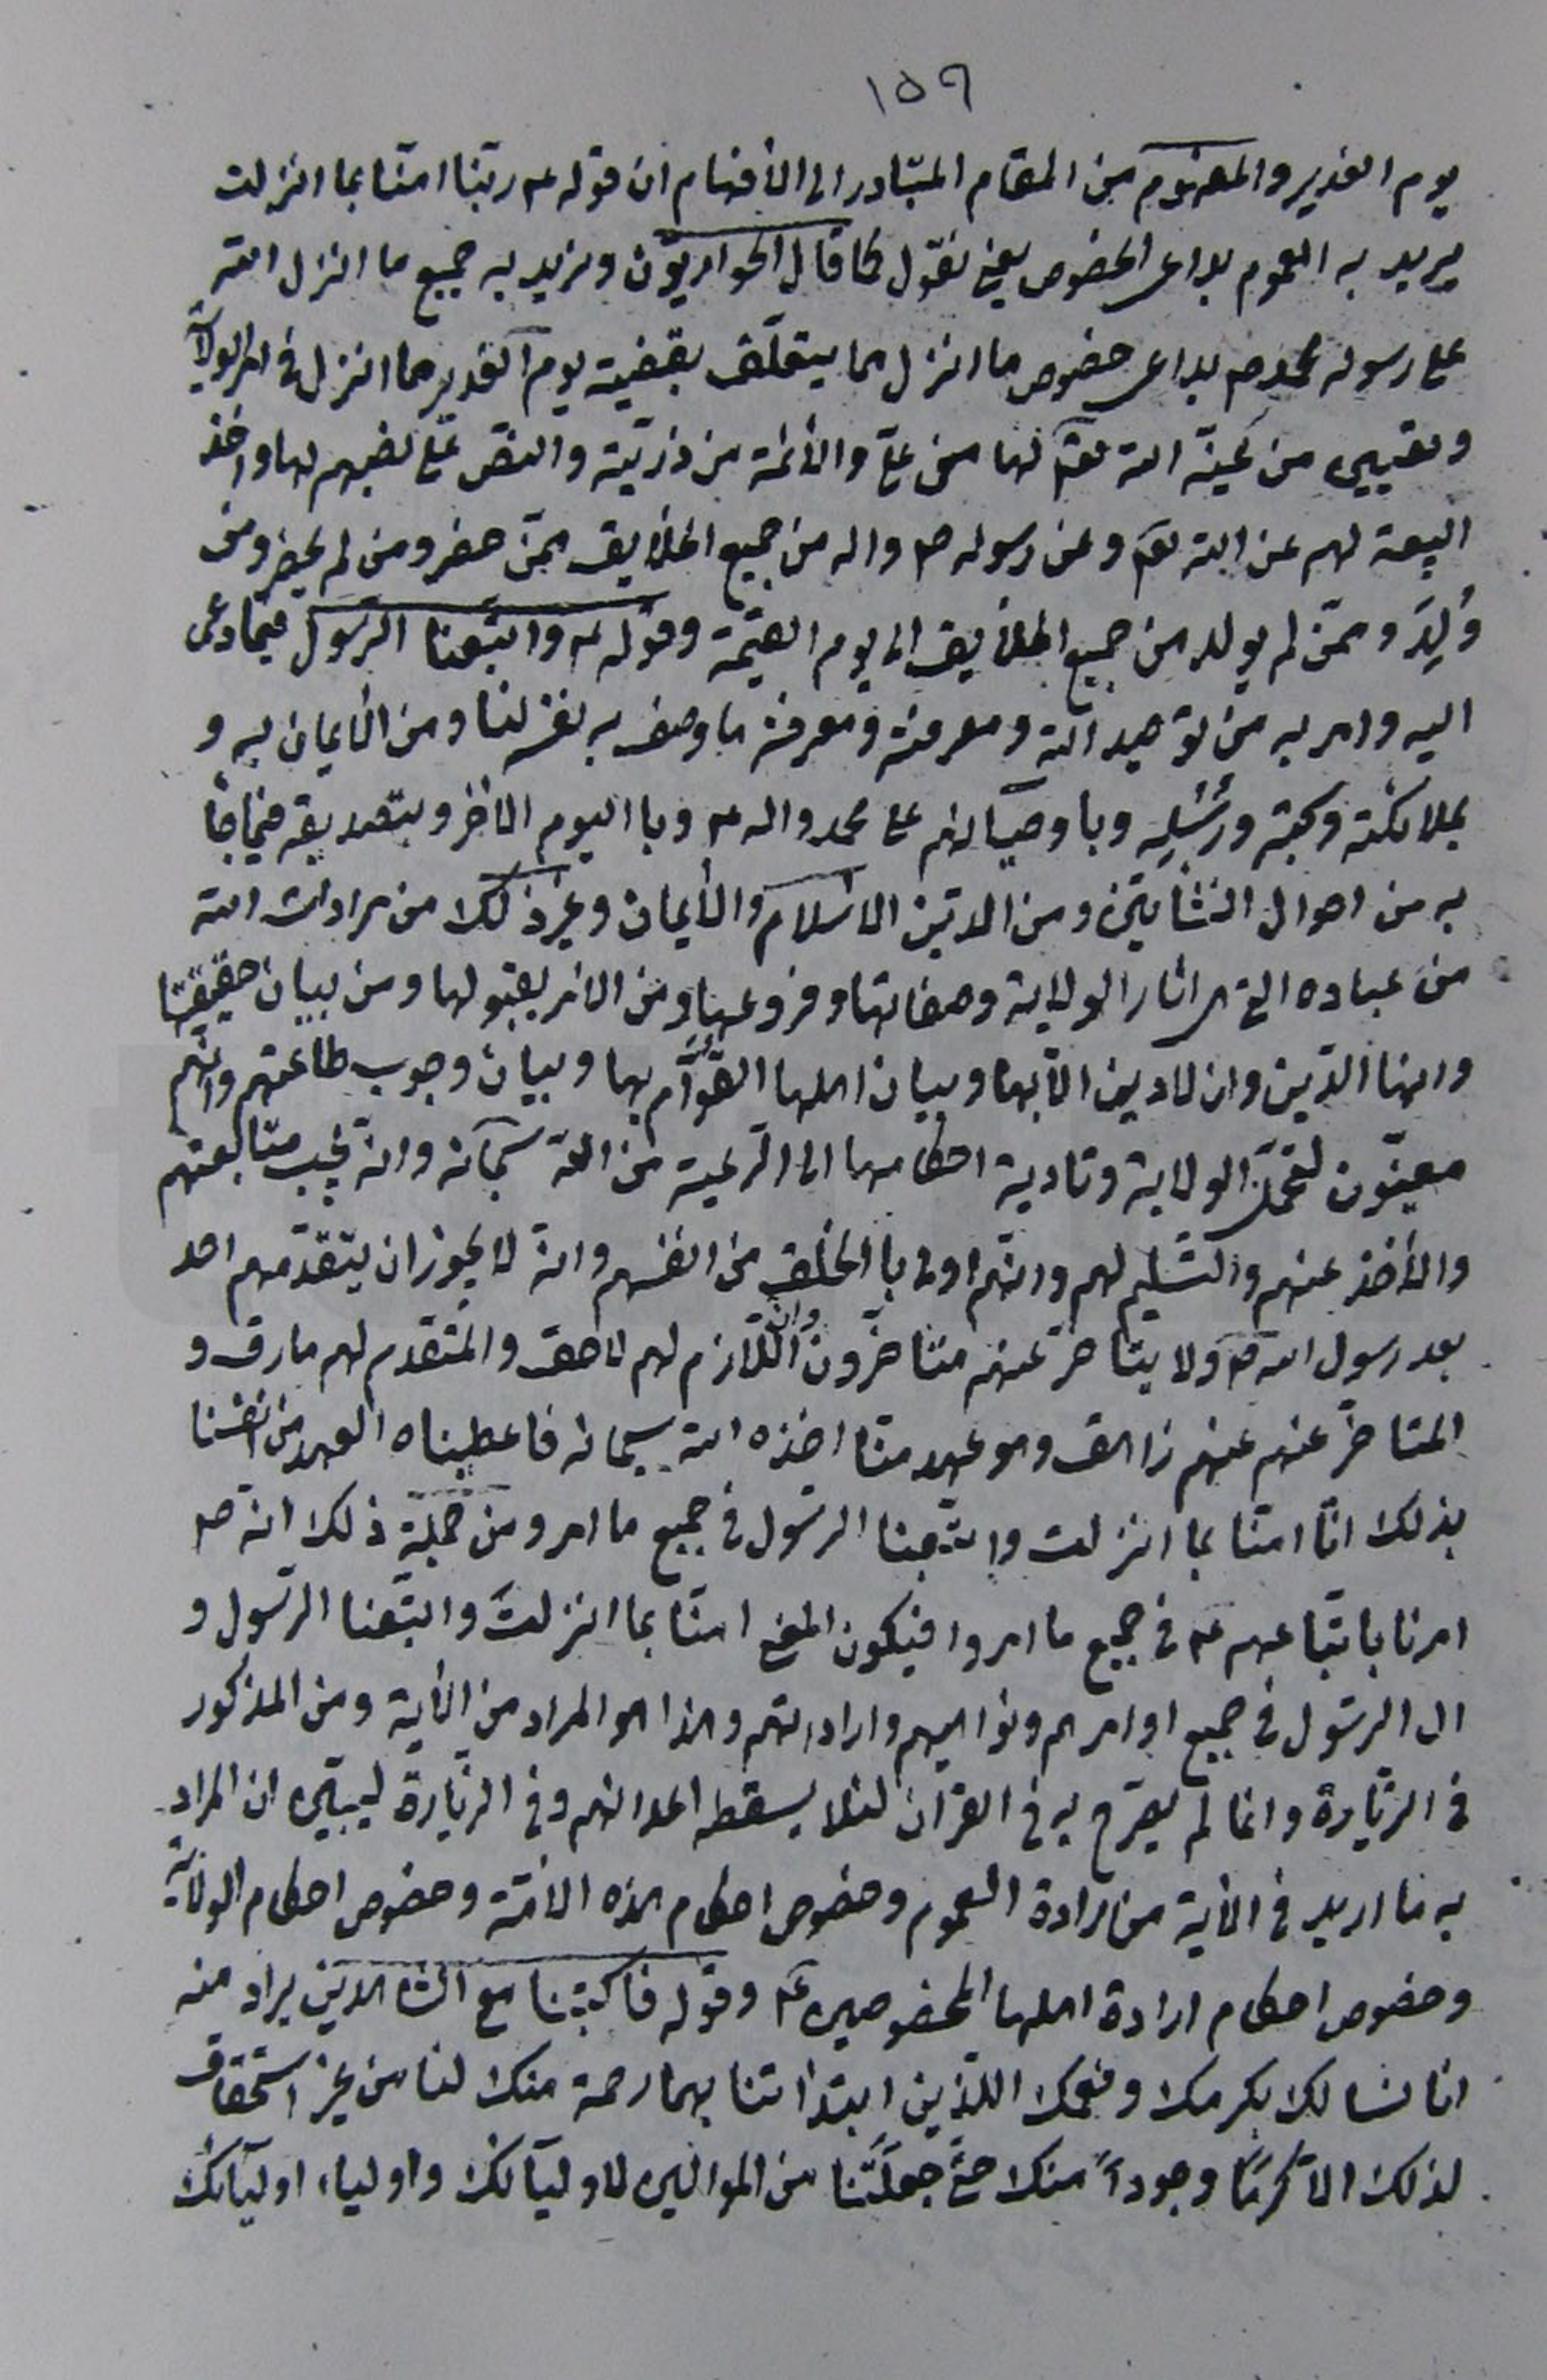 ١٥٩
يوم الغدير والمفهوم من المقام المتبادر الى الأفهام ان قوله ع ربّنا امنّا بما انزلت
يريد به العموم بداعى الخصوص يعنى نقول كما قال الحواريّون ونريد به جميع ما انزل الله
على رسوله محمد ص بداعى خصوص ما انزل مما يتعلّق بقضية يوم الغدير مما انزل فى امر الولاية
وتعيين من عيّنه الله تعالى لها من علىّ والأئمّة من ذرّيّته والنصّ على نصبهم لها واخذ
البيعة لهم عن الله تع وعن رسوله ص واله من جميع الخلايق ممّن حضر ومن لم يحضر ومن
وُلِدَ وممّن لم يولد من جميع الخلأيق الى يوم القيٰمة وقوله ع واتّبعنا الرّسول فيما دعى
اليه وامر به من توحيد الله ومعرفته ومعرفة ما وصف به نفسه لنا ومن الأيمان به و
بملائكته وكتبه ورُسُلِه وباوصيائهم على محمد واله ع وبا اليوم الاخر وبتصديقه فيما جاۤء
به من احوال النشأتين ومن الدّين الاسْلام والأيمان وغير ذلك من مرادات الله
من عباده التى اثار الولاية وصفاتها وفروعها ومن الامر بقبولها ومن بيان حقيقتها
وانها الدّين وان لا دين الّا بها وبيان اهلها القوّام بها وبيان وجوب طاعتهم وانّهم
معيّنون لتحمّل الولاية وتادية احكامها الى الرّعية من الله سبحانه وانه يجب متابعتهم
والأخذ عنهم والتّسليم لهم وانّهم اولى با الخلق من انفسهم وانه لا يجوز ان يتقدّمهم احد
بعد رسول الله ص ولا يتاخر عنهم متاخّرون وانّ اللّازم لهم لاحق والمتقدم لهم مارق و
المتاخّر عنهم عنهم زاهق وهو عهد منّا اخذه الله سبحانه فاعطيناه العهد من انفسنا
بذلك انّا امنّا بما انزلت واتّبعنا الرسّول فى جميع ما امر ومن جملة ذلك انه ص
امرنا باتّباعهم ع فى جميع ما امروا فيكون المعنى امنّا بما انزلتَ واتبّعنا الرّسول و
ال الرسّول فى جميع اوامرهم ونواهيهم واراداتهم وهذا هو المراد من الأية ومن المذكور
فى الزّيارة وانما لم يصّرح به فى القرآن لئلا يسقطه اعدائهم وفى الزّيارة ليبيّن ان المراد
به ما اريد فى الأية من ارادة العموم وخصوص احكام هذه الامّة وخصوص احكام الولاية
وخصوص احكام ارادة اهلها المخصوصين ع وقوله فاكتبنا مع الشاهدين يراد منه
انا نسالك بكرمك ونعمك اللذين ابتداتنا بهما رحمة منك لنا من غير استحقاق
لذلك الّا كرمًا وجوداً منك حتّى جعلتَنا من الموالين لاوليآئك واولياء اوليآئك